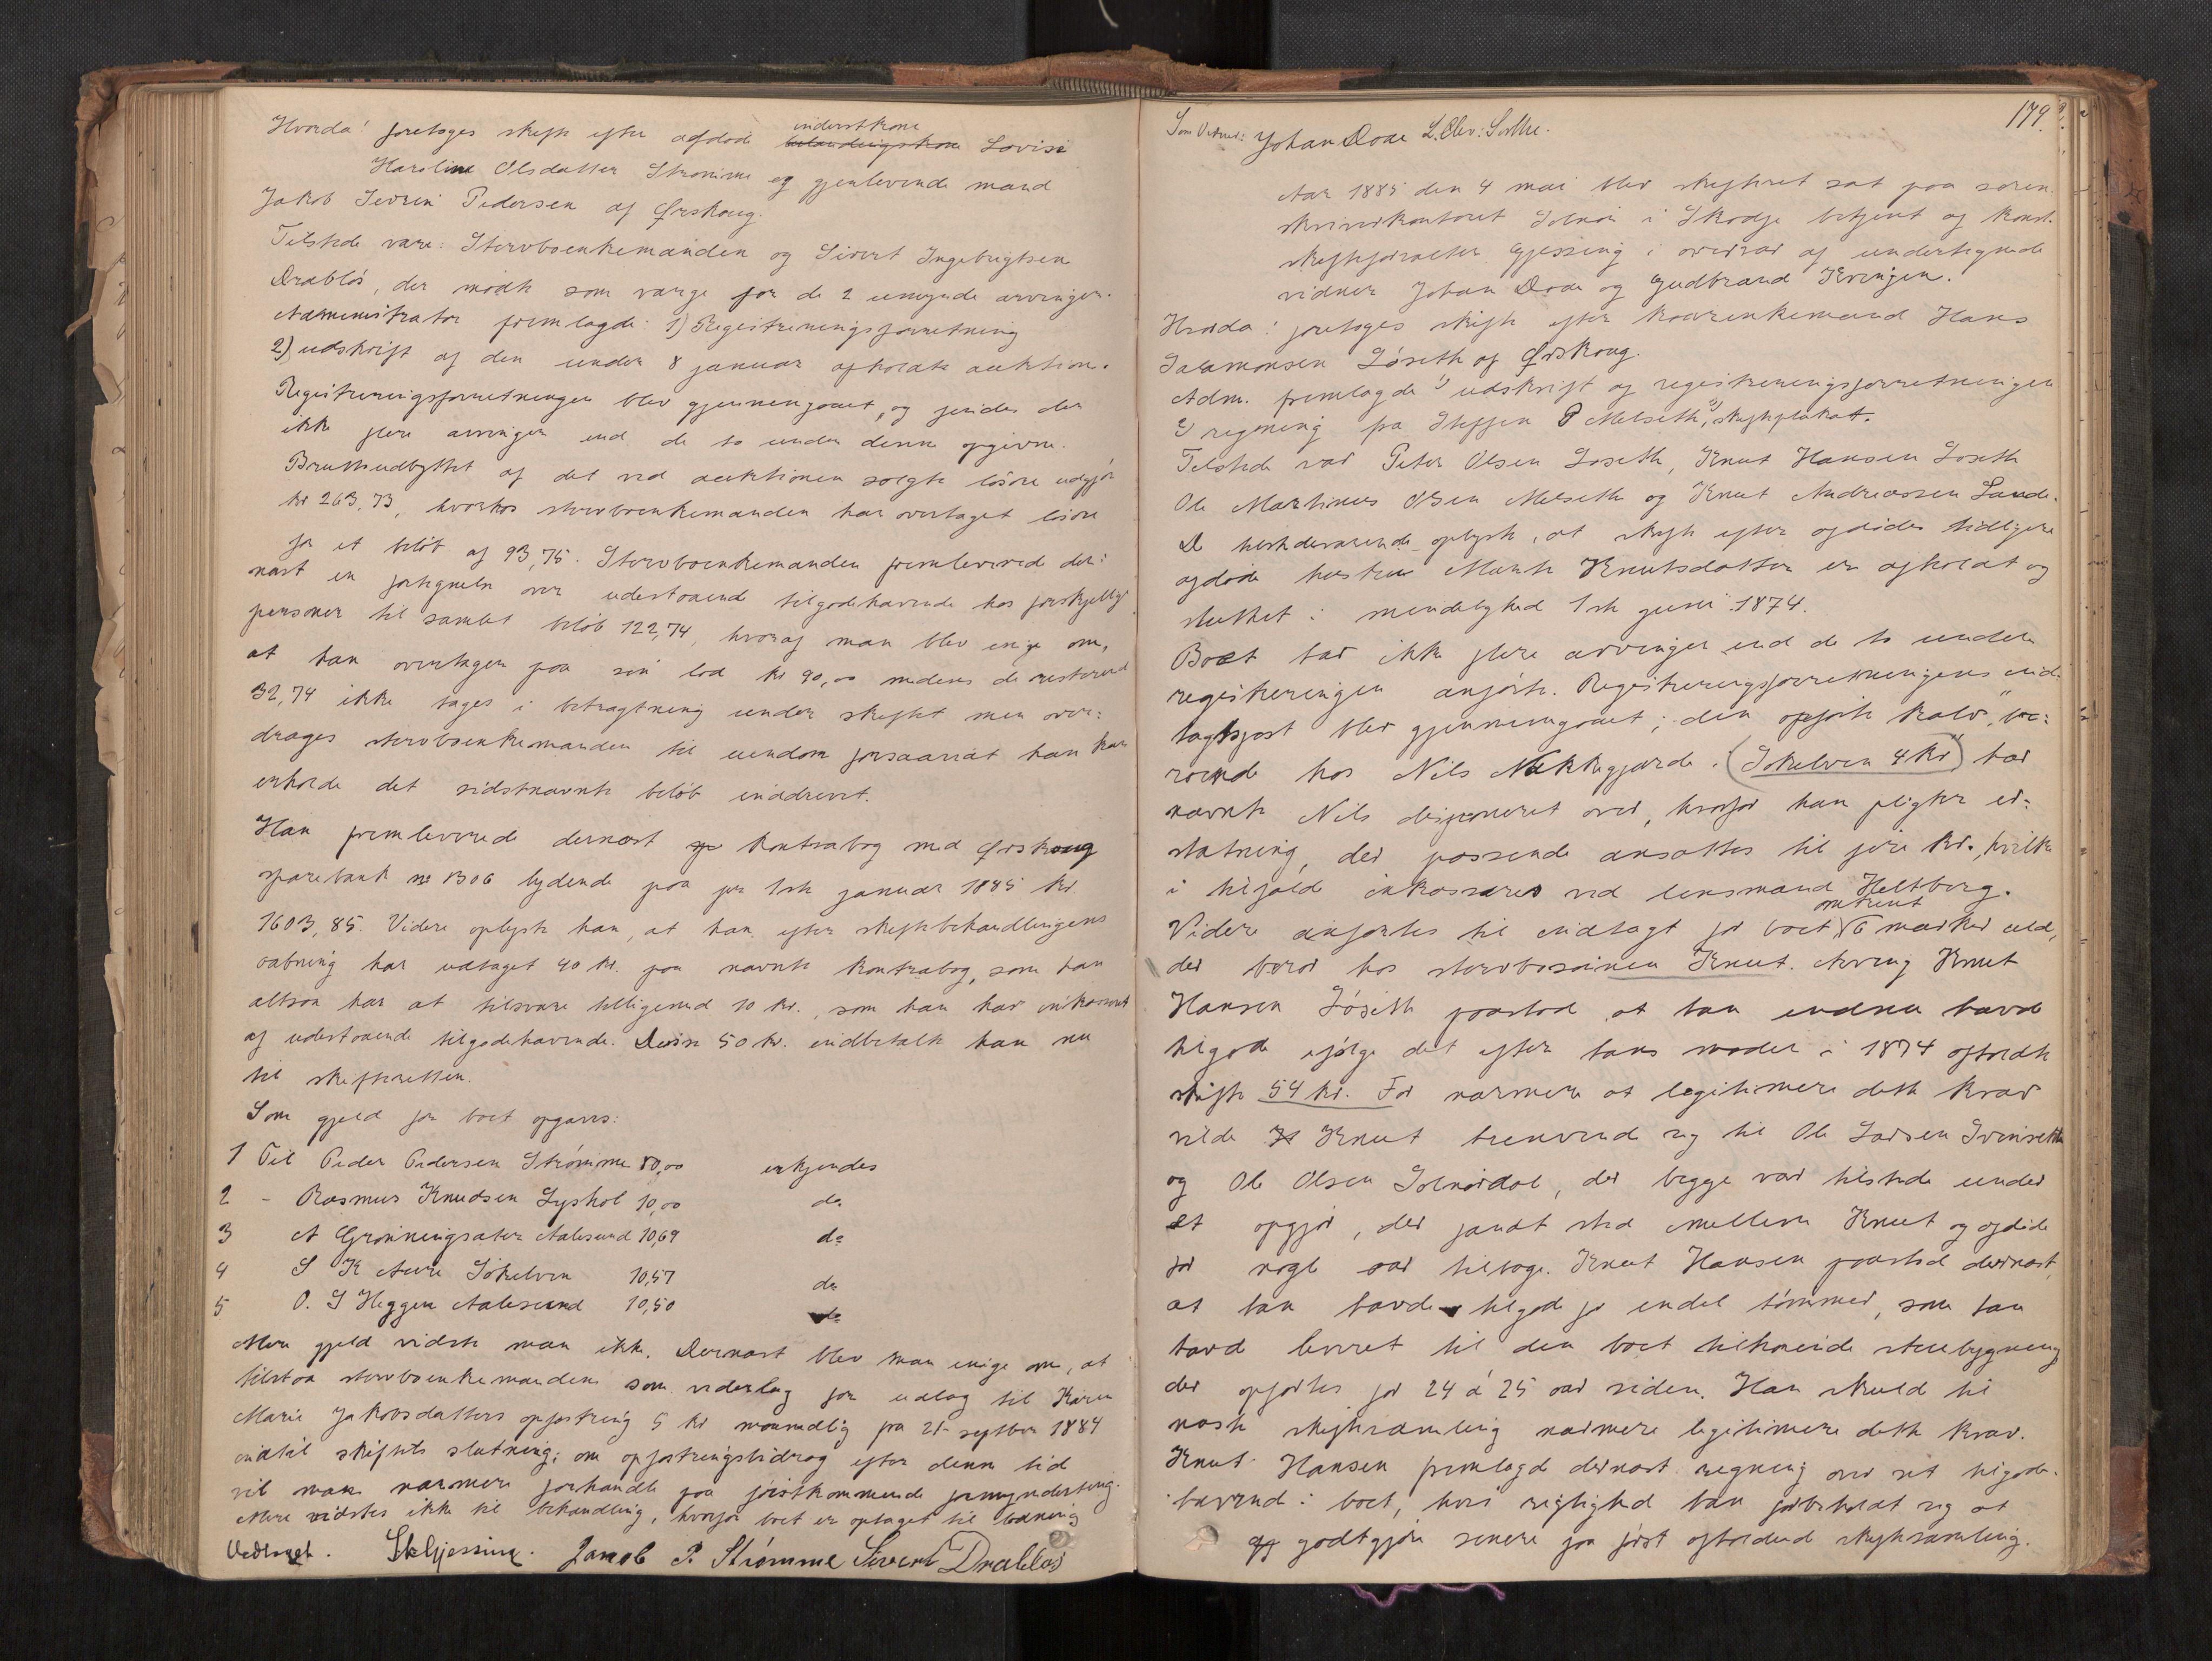 Hvorda! foretoges skifte efter afdøde inderstkone Lovise
Karoline Olsdatter Strømme og gjenlevende mand
Jakob Severin Pedersen af Ørskoug.
Tilstede vare: Stervboenkemanden og Sivert Ingebrigtsen
Drabløs, der mødte som værge for de 2 umynde arvinger.
Administrator fremlagde: 1) Registreringsforretning
2) udskrift af den under 8 januar afholdte auktion.
Registreringsforretningen blev gjennemgaaet, og findes der
ikke flere arvinger end de to under denne opgivne.
Bruttoudbyttet af det ved auktionen solgte løsøre udgjør
kr 263,73, hvorhos stervboenkemanden har overtaget løsøre
for et beløb af 93,75. Stervboenkemanden fremleverede der:
næst en fortegnelse over udestaaende tilgodehavende hos forskjellige
personer til samlet beløb 122,74, hvoraf man blev enige om,
at han overtager paa sin lod kr 90,00 medens de resterende
32,74 ikke tages i betragtning under skiftet men over:
drages stervboenkemanden til eiendom forsaavidt han kan
erholde det sidstnævnte beløb inddrevet.
Han fremleverede dernæst kontrabog med Ørskoug
sparebank no 1306 lydende paa pr 1ste januar 1885 kr.
1603,85. Videre oplyste han, at han efter skiftebehandlingens
aabning har udtaget 40 kr. paa nævnte kontrabog, som han
altsaa har at tilsvare tilligemed 10 kr., som han har inkasseret
af udestaaende tilgodehavende. Disse 50 kr. indbetalte han nu
til skifteretten.
Som gjeld for boet opgaves:
1 Til Peder Pedersen Strømme 80,00 erkjendes
2 - Rasmus Knudsen Lyshol 10,00 do
3 A Grønningsæter Aalesund 10,69 do
4 S K Aure Søkelven 10,57 do
5 O. S Heggen Aalesund 10,50 do
Mere gjeld vidste man ikke. Dernæst blev man enige om, at
tilstaa stervboenkemanden som vederlag for udlæg til Karen
Marie Jakobsdatters opfostring 5 kr maanedlig fra 21 septber 1884
indtil skiftets slutning; om opfostringsbidrag efter denne tid
vil man nærmere forhandle paa førstkommende formynderting.
Mere vidstes ikke til behandling, hvorfor boet er optaget til lodning
Vedtaget. Sk Gjessing. Jamob P. Strømme Sivert Drabløs
179.
Som Vidner: Johan Doxe L. Elv: Sothe.
Aar 1885 den 4 mai blev skifteret sat paa soren
skriverkontoret Solnør i Skodje betjent af konst.
skifteforvalter Gjessing i overvær af undertegnede
vidner Johan Doxe og Gudbrand Kvingen.
Hvorda! foretoges skifte efter kaarenkemand Hans
Salamonsen Løseth af Ørskoug.
Adm. fremlagde 1) udskrift af registreringsforretningen
2) regning fra Steffen P Melseth, 3) skifteplakat.
Tilstede var Peter Olsen Løseth, Knut Hansen Løseth
Ole Martinus Olsen Melseth og Knut Andreassen Lande.
De tilstedeværende oplyste, at skifte efter afdødes tidligere
afdøde hustru Marte Knutsdatter er afholdt og
sluttet i mindelighed 1ste juni 1874.
Boet har ikke flere arvinger end de to under
registreringen anførte. Registreringsforretningens ind:
tagtspost blev gjennemgaaet; den opførte kalv, "be:
roende hos Nils Nakkegjærde i (Søkelven 4 kr)" har
nævnte Nils disponeret over, hvorfor han pligter er:
statning, der passende ansattes til fire kr., hvilke
i tilfælde inkasseres ved lensmand Heltberg.
Videre anførtes til indtægt for boet omtrent 6 marker uld,
der beror hos stervbosønnen Knut. Arving Knut
Hansen Løseth paastod at han endnu havde
tilgode ifølge det efter hans moder i 1874 afholdte
skifte 54 kr. For nærmere at legitimere dette krav
vilde Knut henvende sig til Ole Larsen Ivenseth
og Ole Olsen Solnørdal, der begge var tilstede under
et opgjør, der fandt sted mellem Knut og afdøde
for nogle aar tilbage. Knut Hansen paastod dernæst,
at han havde tilgode for endel tømmer, som han
havde leveret til den boet tilhørende stuebygning
der opførtes for 24 á 25 aar siden. Han skulde til
næste skiftesamling nærmere legitimere dette krav.
Knut Hansen fremlagde dernæst regning over sit tilgode:
havende i boet, hvis rigtighed han forbeholdt sig at
godtgjøre senere paa først afholdende skiftesamling.